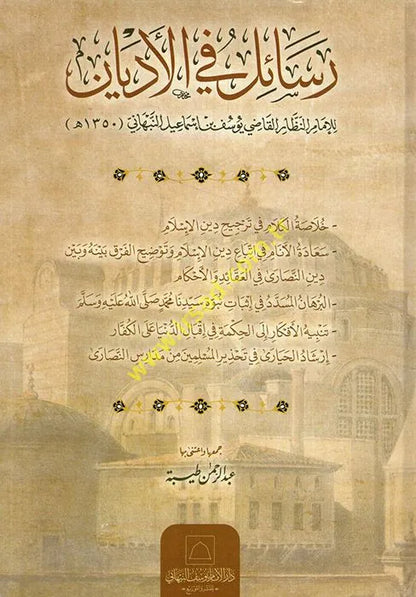 رسائل في الأديان
للإمام النظار القاضي يوسف بن إسماعيل النبهاني (١٣٥٠هـ)
- خلاصة الكلام في ترجيح دين الإسلام
- سعادة الأنام في اتباع دين الإسلام وتوضيح الفرق بينه وبين
دين النصارى في العقائد والأحكام
- البرهان المسدد في إثبات نبوة سيدنا محمد صلى الله عليه وسلم
- تنبيه الأفكار إلى الحكمة في إقبال الدنيا على الكفار
- إرشاد الحيارى في تحذير المسلمين من مدارس النصارى
جمعها واعتنى بها
عبد الرحمن طيبة
دار الإمام يوسف النبهاني
للنشر والتوزيع